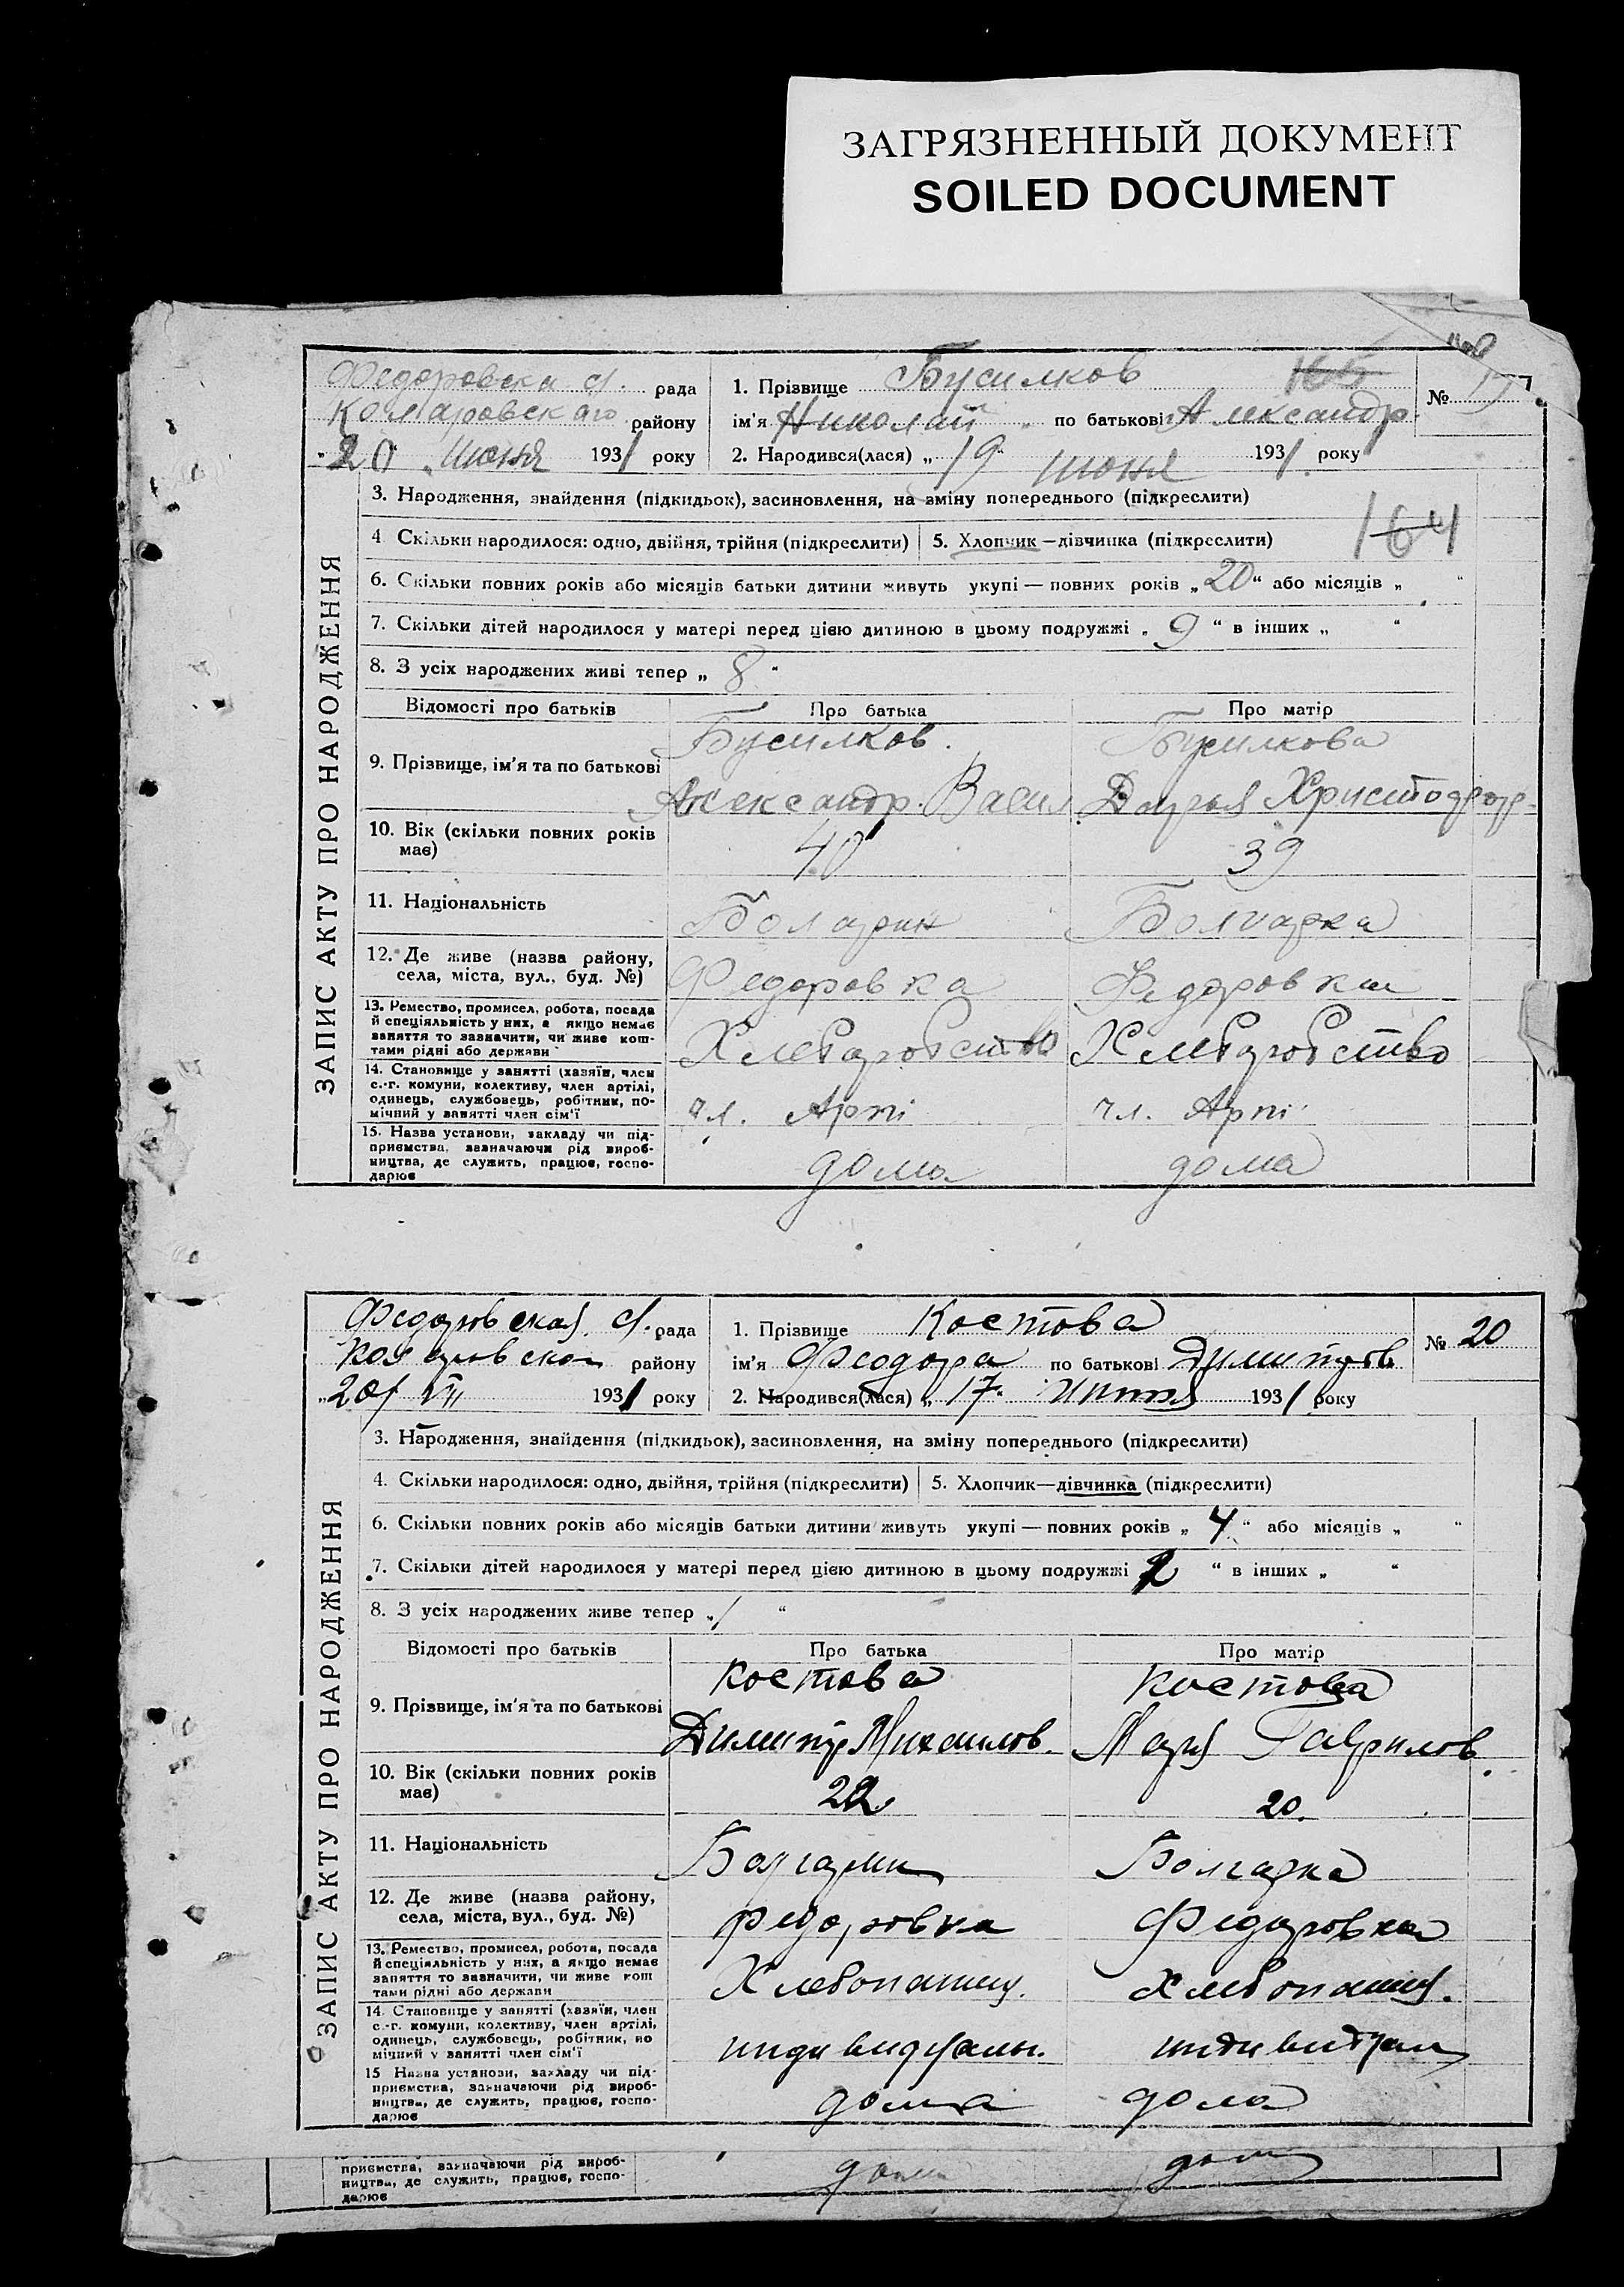 ЗАГРЯЗНЕННЫЙ ДОКУМЕНТ
SOILED DOCUMENT
ЗАПИС АКТУ ПРО НАРОДЖЕННЯ
Федоровска с. рада
району
20 июня 1931 року
1. Прізвище Бусилков
165
№
ім'я Николай по батькові Александр.
2. Народився(лася) „19“ июня 1931 року
3. Народження, знайдення (підкидьок), засиновлення, на зміну попереднього (підкреслити)
4 Скільки народилося: одно, двійня, трійня (підкреслити) 5. Хлопчик—дівчинка (підкреслити)
164
6. Скільки повних років або місяців батьки дитини живуть укупі — повних років „20“ або місяців „ “
7. Скільки дітей народилося у матері перед цією дитиною в цьому подружжі „9“ в інших „ “
8. З усіх народжених живі тепер „8“
Відомості про батьків Про батька Про матір
9. Прізвище, ім'я та по батькові
Бусилков. Бусилкова
Александр. Васил Дарья Христофор.
10. Вік (скільки повних років має) 40 39
11. Національність Болгарин Болгарка
12. Де живе (назва району, села, міста, вул., буд. №) Федоровка Федоровка
13. Ремество, промисел, робота, посада
й спеціяльність у них, а якщо немає
заняття то зазначити, чи живе кош-
тами рідні або держави
Хлебаробство Хлебаробство
14. Становище у занятті (хазяїн, член
с.-г. комуни, колективу, член артілі,
одинець, службовець, робітник, по-
мічний у занятті член сім'ї
чл. Арті чл. Арті
15. Назва установи, закладу чи під-
приємства, зазначаючи рід вироб-
ництва, де служить, працює, госпо-
дарює
дома дома
ЗАПИС АКТУ ПРО НАРОДЖЕННЯ
Федоровская с. рада
району
1931 року
1. Прізвище Костова
№ 20
ім'я Феодора по батькові Димитров
2. Народився(лася) „17“ 1931 року
3. Народження, знайдення (підкидьок), засиновлення, на зміну попереднього (підкреслити)
4. Скільки народилося: одно, двійня, трійня (підкреслити) 5. Хлопчик—дівчинка (підкреслити)
6. Скільки повних років або місяців батьки дитини живуть укупі — повних років „4“ або місяців „ “
7. Скільки дітей народилося у матері перед цією дитиною в цьому подружжі 2 “ в інших „ “
8. З усіх народжених живе тепер „1 “
Відомості про батьків Про батька Про матір
9. Прізвище, ім'я та по батькові
Костова Костова
Димитр Михаилов. Мария Гаврилов.
10. Вік (скільки повних років має) 22 20.
11. Національність Болгарин Болгарка
12. Де живе (назва району, села, міста, вул., буд. №) Федоровка Федоровка
13. Ремество, промисел, робота, посада
й спеціяльність у них, а якщо немає
заняття то зазначити, чи живе кош
тами рідні або держави
14. Становище у занятті (хазяїн, член
с.-г. комуни, колективу, член артілі,
одинець, службовець, робітник, по
мічний у занятті член сім'ї
индивидуальн. индивидуал
15 Назва установи, закладу чи під-
приємства, зазначаючи рід вироб-
ництва, де служить, працює, госпо-
дарює
дома дома
приємства, зазначаючи рід вироб-
ництва, де служить, працює, госпо-
дарює